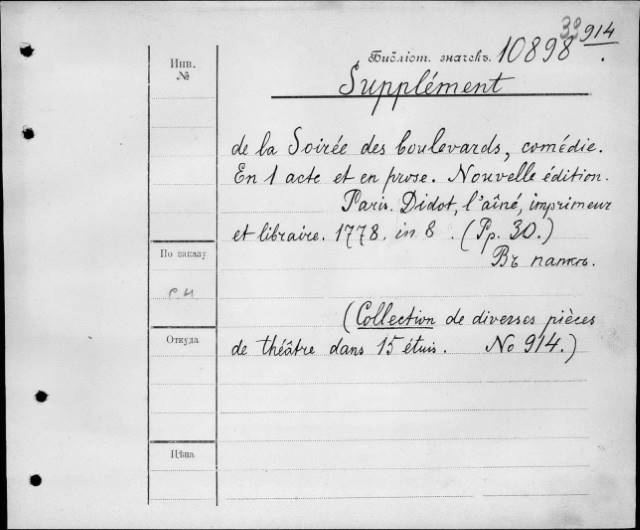 33 914
Инв.
№
Библіот. значекъ. 10898
Supplément
de la Soirée des boulevards, comédie.
En 1 acte et en prose. Nouvelle édition.
Paris. Didot, l'aîné, imprimeur
et libraire. 1778. in 8. (Pp. 30.)
Въ папкѣ.
По заказу
(Collection de diverses pièces
Откуда
de théâtre dans 15 étuis. No 914.)
Цѣна